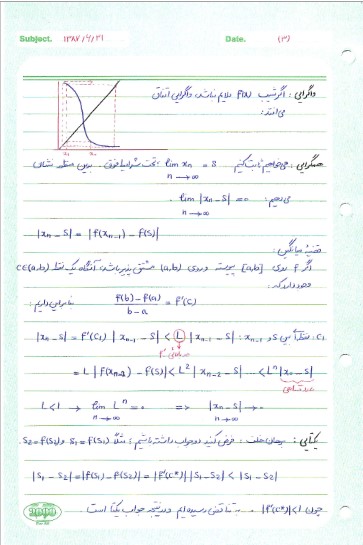 Subject. ۱۳۸۷/۶/۳۱ Date. (۳)
واگرایی: اگر شیب f(x) ملایم نباشد، واگرایی اتفاق
می‌افتد:
x₁
همگرایی: می‌خواهیم ثابت کنیم lim xn = S تحت شرایط فوق. برای این مسئله نشان
n→∞
می‌دهیم: lim |xn - S| = 0.
n→∞
|xn - S| = |f(xn-1) - f(S)|
قضیه میانگین:
اگر f روی [a,b] پیوسته و روی (a,b) مشتق پذیر باشد، آنگاه یک نقطه c∈(a,b)
وجود دارد که: f(b)-f(a) / b-a = f'(c) بنابراین داریم:
|xn - S| = f'(C₁) |xn-1 - S| < L |xn-1 - S| : xn-1 و S بین
= L |f(xn-2) - f(S)| < L² |xn-2 - S| ... < Lⁿ |x₀ - S|
L<1 → lim Lⁿ = 0 => |xn - S| → 0
n→∞ n→∞
یکتایی: برهان خلف: فرض کنید دو جواب داشته باشیم؛ مثلاً S₁=f(S₁) و S₂=f(S₂)
|S₁ - S₂| = |f(S₁) - f(S₂)| = |f'(c*)| |S₁ - S₂| < |S₁ - S₂|
چون |f'(c*)| < 1 ... به تناقض رسیده‌ایم و در نتیجه جواب یکتا است